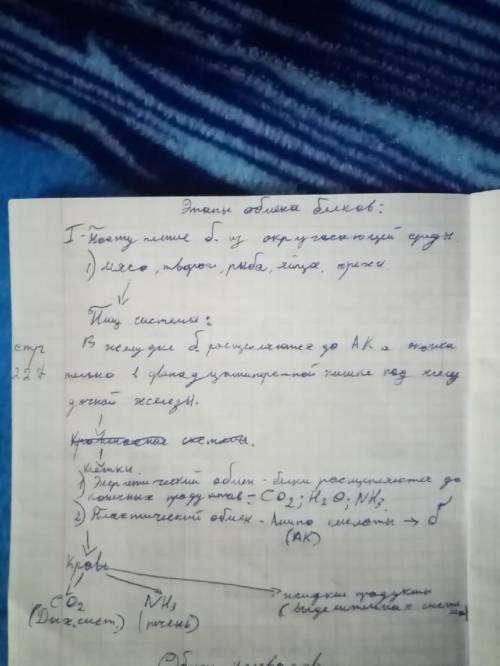 Этапы обмена белков:
I - Поступление б. из окружающей среды
1) мясо, творог, рыба, яйца, орехи
Пищ система:
стр
В желудке б. расщепляются до АК а
227
только в двенадцатиперстной кишке под
дочной железы.
Кровеносная система.
Клетки.
1) Энергетический обмен - белки расщепляются до
конечных продуктов - CO2; H2O; NH3.
2) Пластический обмен - Амино кислоты → б
(АК)
Кровь
CO2
NH3
жидкие продукты
(Дых.сист)
(печень)
(выделительная система)
Обмен